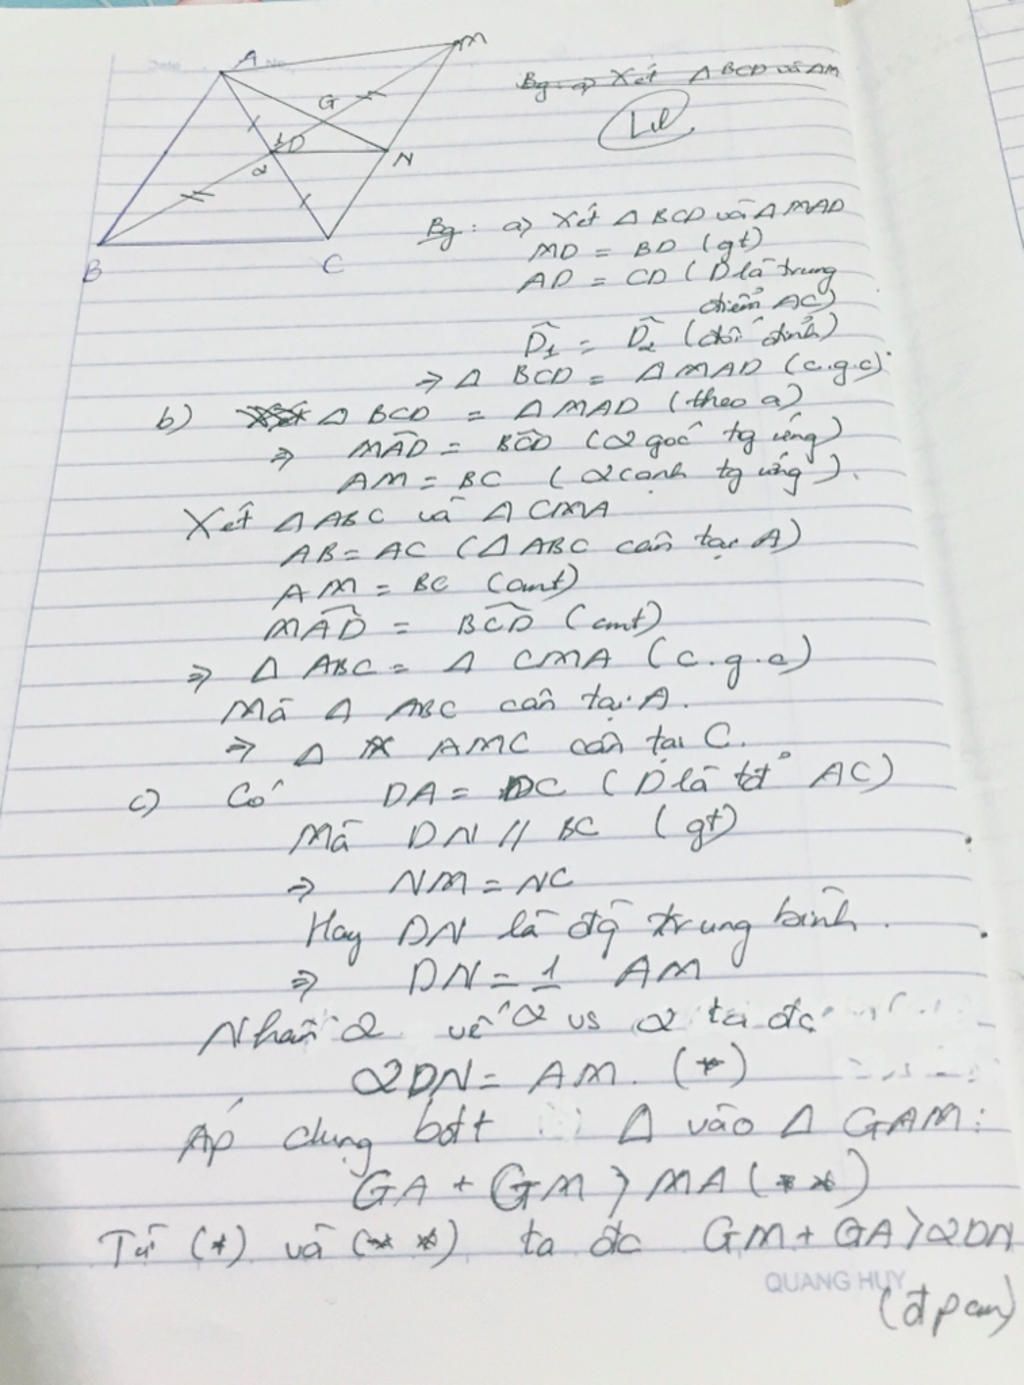 A
M
G
1
D
2
N
B
C
Bg: a) Xét Δ BCD và AM
Bg: a) Xét Δ BCD và Δ MAD
MD = BD (gt)
AD = CD ( D là trung
điểm AC)
D̂1 = D̂2 (đối đỉnh)
⇒ Δ BCD = Δ MAD (c.g.c)
b) Δ BCD = Δ MAD (theo a)
⇒ MAD̂ = BCD̂ (2 góc tg ứng)
AM = BC ( 2 cạnh tg ứng ).
Xét Δ ABC và Δ CMA
AB = AC (Δ ABC cân tại A)
AM = BC (cmt)
MAD̂ = BCD̂ (cmt)
⇒ Δ ABC = Δ CMA (c.g.c)
Mà Δ ABC cân tại A.
⇒ Δ AMC cân tại C.
c) Có DA = DC ( D là tđ AC)
Mà DN // BC (gt)
⇒ NM = NC
Hay DN là đg trung bình.
⇒ DN = 1 AM
Nhân 2 vế vs 2 ta đc
2DN = AM. (*)
Áp dụng bđt Δ vào Δ GAM:
GA + GM > MA (**)
Từ (*) và (**) ta đc GM + GA > 2DN
QUANG HUY
(đpcm)